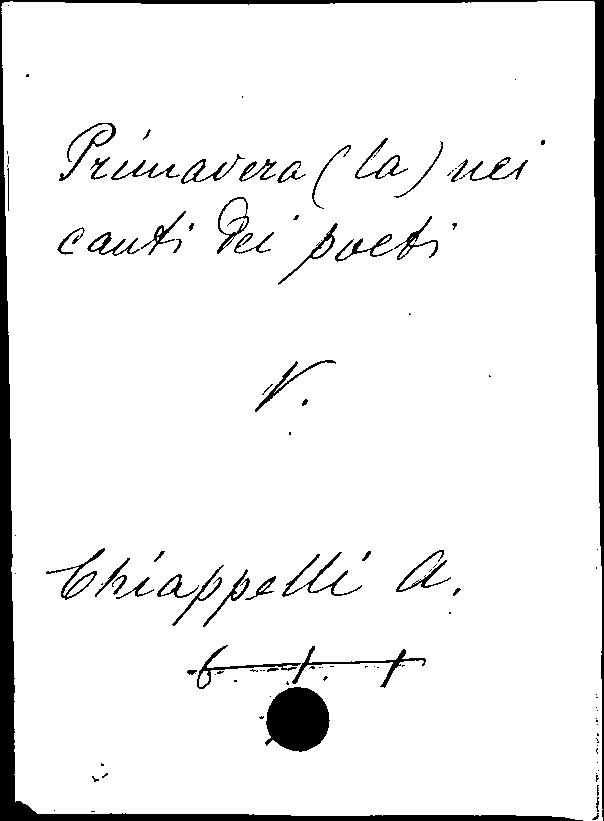 Primavera (la) nei
canti dei poeti
V.
Chiappelli A.
6. 1. 1